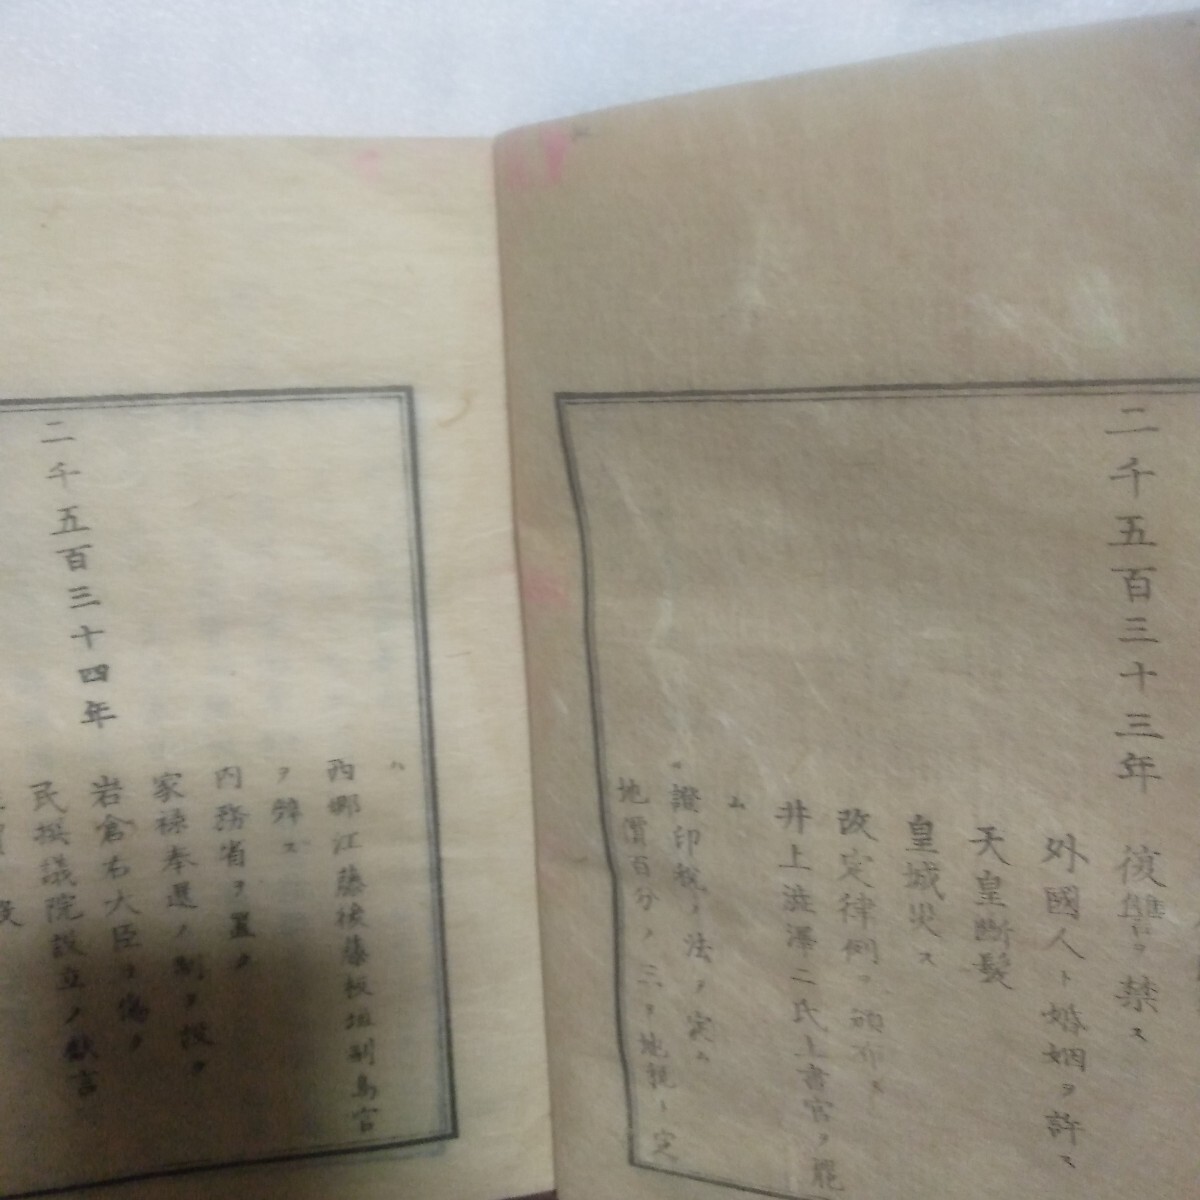 二千五百三十三年 復讐ヲ禁ス
外國人ト婚姻ヲ許ス
天皇斷髮
皇城災ス
改定律例ヲ頒布ス
井上澁澤二氏上書官ヲ罷
ム
證印稅ノ法ヲ定ム
地價百分ノ三ヲ地租ト定
西鄉江藤後藤板垣副島官
ヲ辭ス
內務省ヲ置ク
家祿奉還ノ制ヲ設ク
二千五百三十四年 岩倉右大臣ヲ傷ク
民撰議院設立ノ獻言